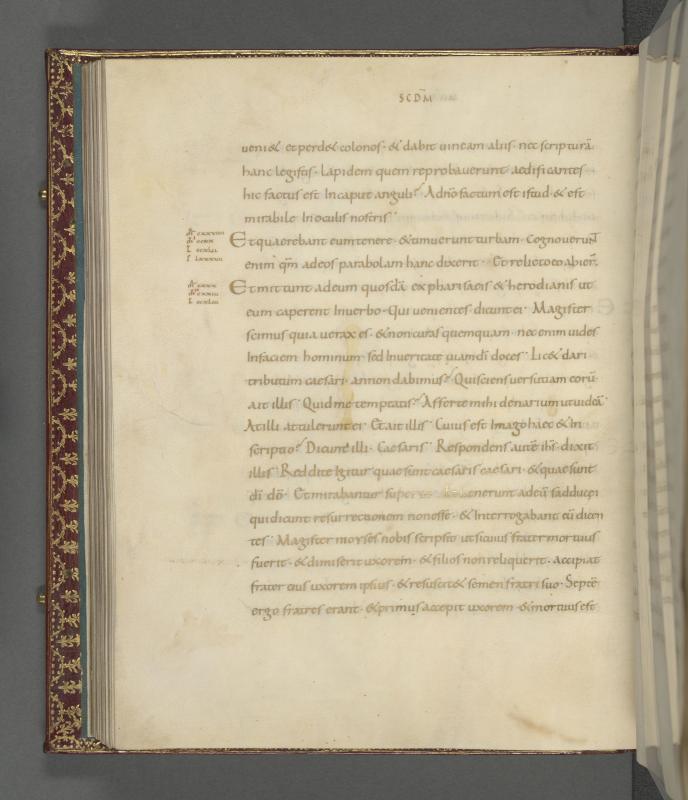 SCDM̄
ueni& et perd& colonos · & dabit uineam aliis · nec scripturā
hanc legistis · Lapidem quem reprobauerunt aedificantes
hic factus est In caput anguli · A dn̄o factum est istud · & est
mirabile In oculis nostris
Et quaerebant eum tenere · & timuerunt turbam · Cognouerunt
enim qm̄ ad eos parabolam hanc dixerit · Et relicto eo abier̄
Et mittunt ad eum quosdā ex pharisaeis & herodianis ut
eum caperent In uerbo · Qui uenientes dicunt ei · Magister
scimus quia uerax es · & non curas quemquam · nec enim uides
In faciem hominum · sed In ueritate uiam dī doces · Lic& dari
tributum caesari · an non dabimus · Qui sciens uersutiam eorū
ait illis · Quid me temptatis · Afferte mihi denarium ut uideā
At illi attulerunt ei · Et ait illis · Cuius est Imago haec & In
scriptio · Dicunt illi · Caesaris · Respondens autē ihs̄ · dixit
illis · Reddite Igitur quae sunt caesaris caesari · & quae sunt
dī dō · Et mirabantur super uenerunt ad eū sadducęi
qui dicunt resurrectionem non esse · & Interrogabant eū dicen
tes · Magister moyses nobis scripsit ut si cuius frater mortuus
fuerit · & dimiserit uxorem · & filios non reliquerit · accipiat
frater eius uxorem ipsius · & resuscit& semen fratri suo · Septē
ergo fratres erant · & primus accepit uxorem · & mortuus est